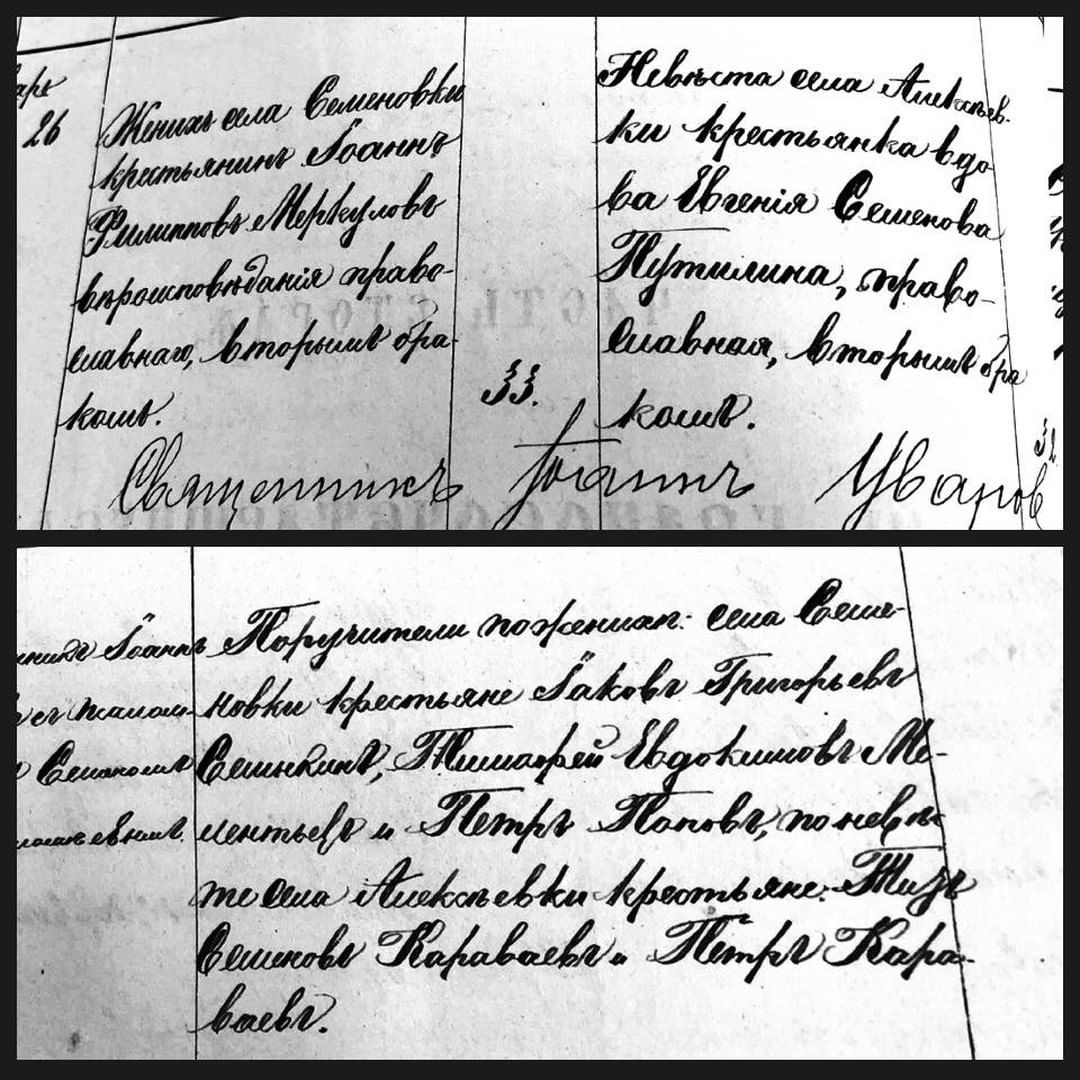 26
Женихъ села Семеновки
крестьянинъ Іоаннъ
Филипповъ Меркуловъ
вѣроисповѣданія право-
славнаго, вторымъ бра-
комъ.
33.
Невѣста села Алексѣев-
ки крестьянка вдо-
ва Евгенія Семенова
Путилина, право-
славная, вторымъ бра
комъ.
32
Священникъ Іоаннъ Уваров
Іоаннъ
Поручители по женихѣ: села Семе-
новки крестьяне Іаковъ Григорьевъ
Тимофей Евдокимовъ Ме-
лентьевъ и Петръ Поповъ, по невѣс
те села Алексѣевки крестьяне:
Семеновъ Караваевъ и Петръ Кара-
ваевъ.